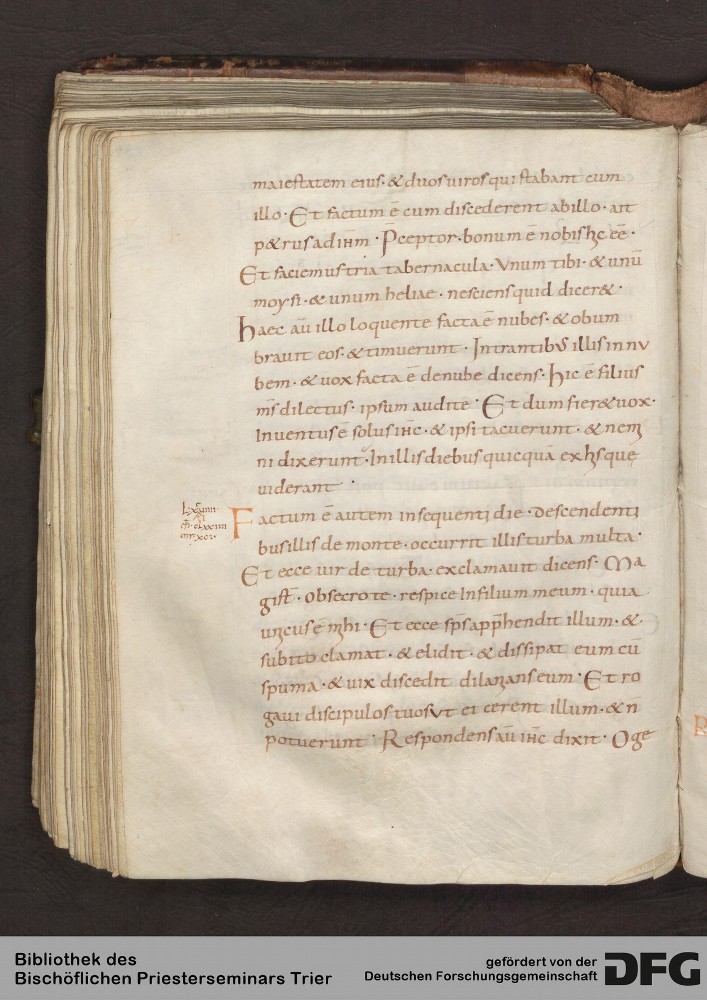 maiestatem eius· & duos uiros qui stabant cum
illo· Et factum ē cum discederent ab illo· ait
p&rus ad ihm̄· P̄ceptor· bonum ē nobis hc̄ eē·
Et faciemus tria tabernacula· Vnum tibi· & unū
moysi· & unum heliae· nesciens quid dicer&·
Haec aū illo loquente facta ē nubes· & obum
brauit eos· & timuerunt· Intrantibus illis in nu
bem· & uox facta ē de nube dicens· Hic ē filius
ms̄ dilectus· ipsum audite· Et dum fier& uox·
Inuentus ē solus ihc̄· & ipsi tacuerunt· & nem
ni dixerunt· In illis diebus quicquā ex his que
uiderant·
Factum ē autem in sequenti die· descendenti
bus illis de monte· occurrit illis turba multa·
Et ecce uir de turba· exclamauit dicens· Ma
gist̄· obsecro te· respice In filium meum· quia
unicus ē mihi· Et ecce sp̄s app̄hendit illum· &·
subito clamat· & elidit· & dissipat eum cū
spuma· & uix discedit dilanians eum· Et ro
gaui discipulos tuos ut eicerent illum· & n̄
potuerunt· Respondens aū ihc̄ dixit· O ge
R
Bibliothek des
Bischöflichen Priesterseminars Trier
gefördert von der
Deutschen Forschungsgemeinschaft
DFG